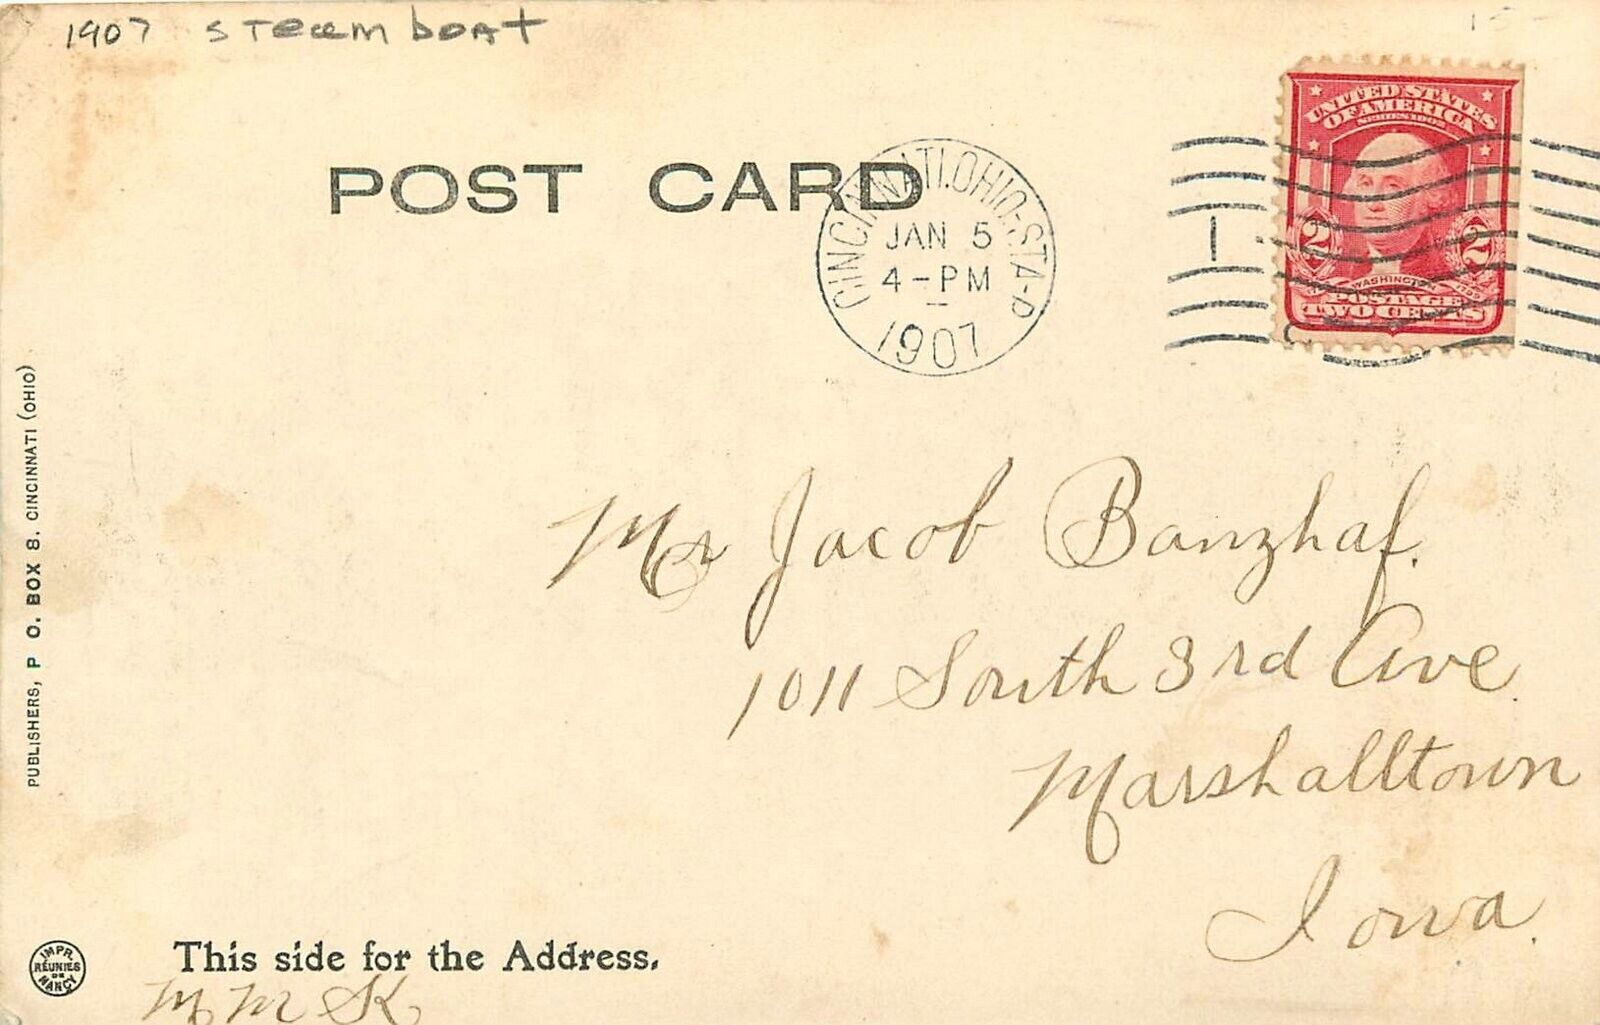 1907 steamboat
15-
POST CARD
CINCINNATI, OHIO-STA-D
JAN 5
4-PM
1907
1
UNITED STATES
OF AMERICA
SERIES 1902
2 2
WASHINGTON
POSTAGE
TWO CENTS
Mr Jacob Banzhaf.
1011 South 3rd Ave.
Marshalltown
Iowa.
PUBLISHERS, P O. BOX 8. CINCINNATI (OHIO)
IMPR.
RÉUNIES
DE
NANCY
This side for the Address.
M M K